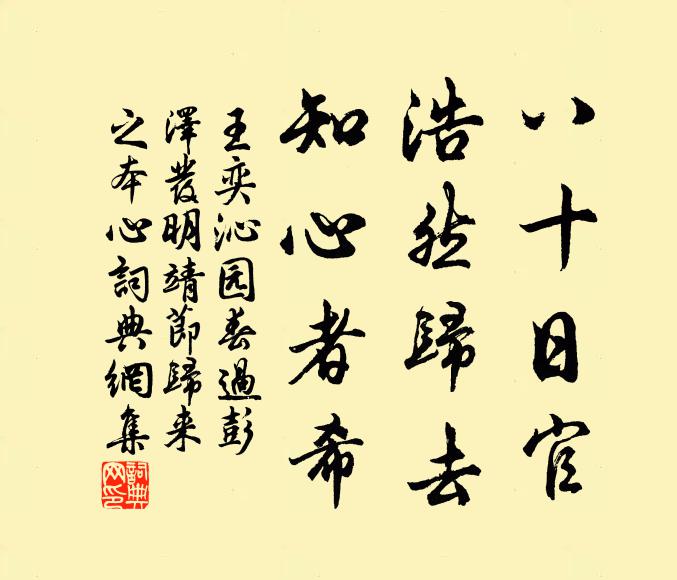 八十日官
浩然歸去
知心者希
王奕沁园春過彭
澤發明靖節歸来
之本心詞典網集
詞典網印